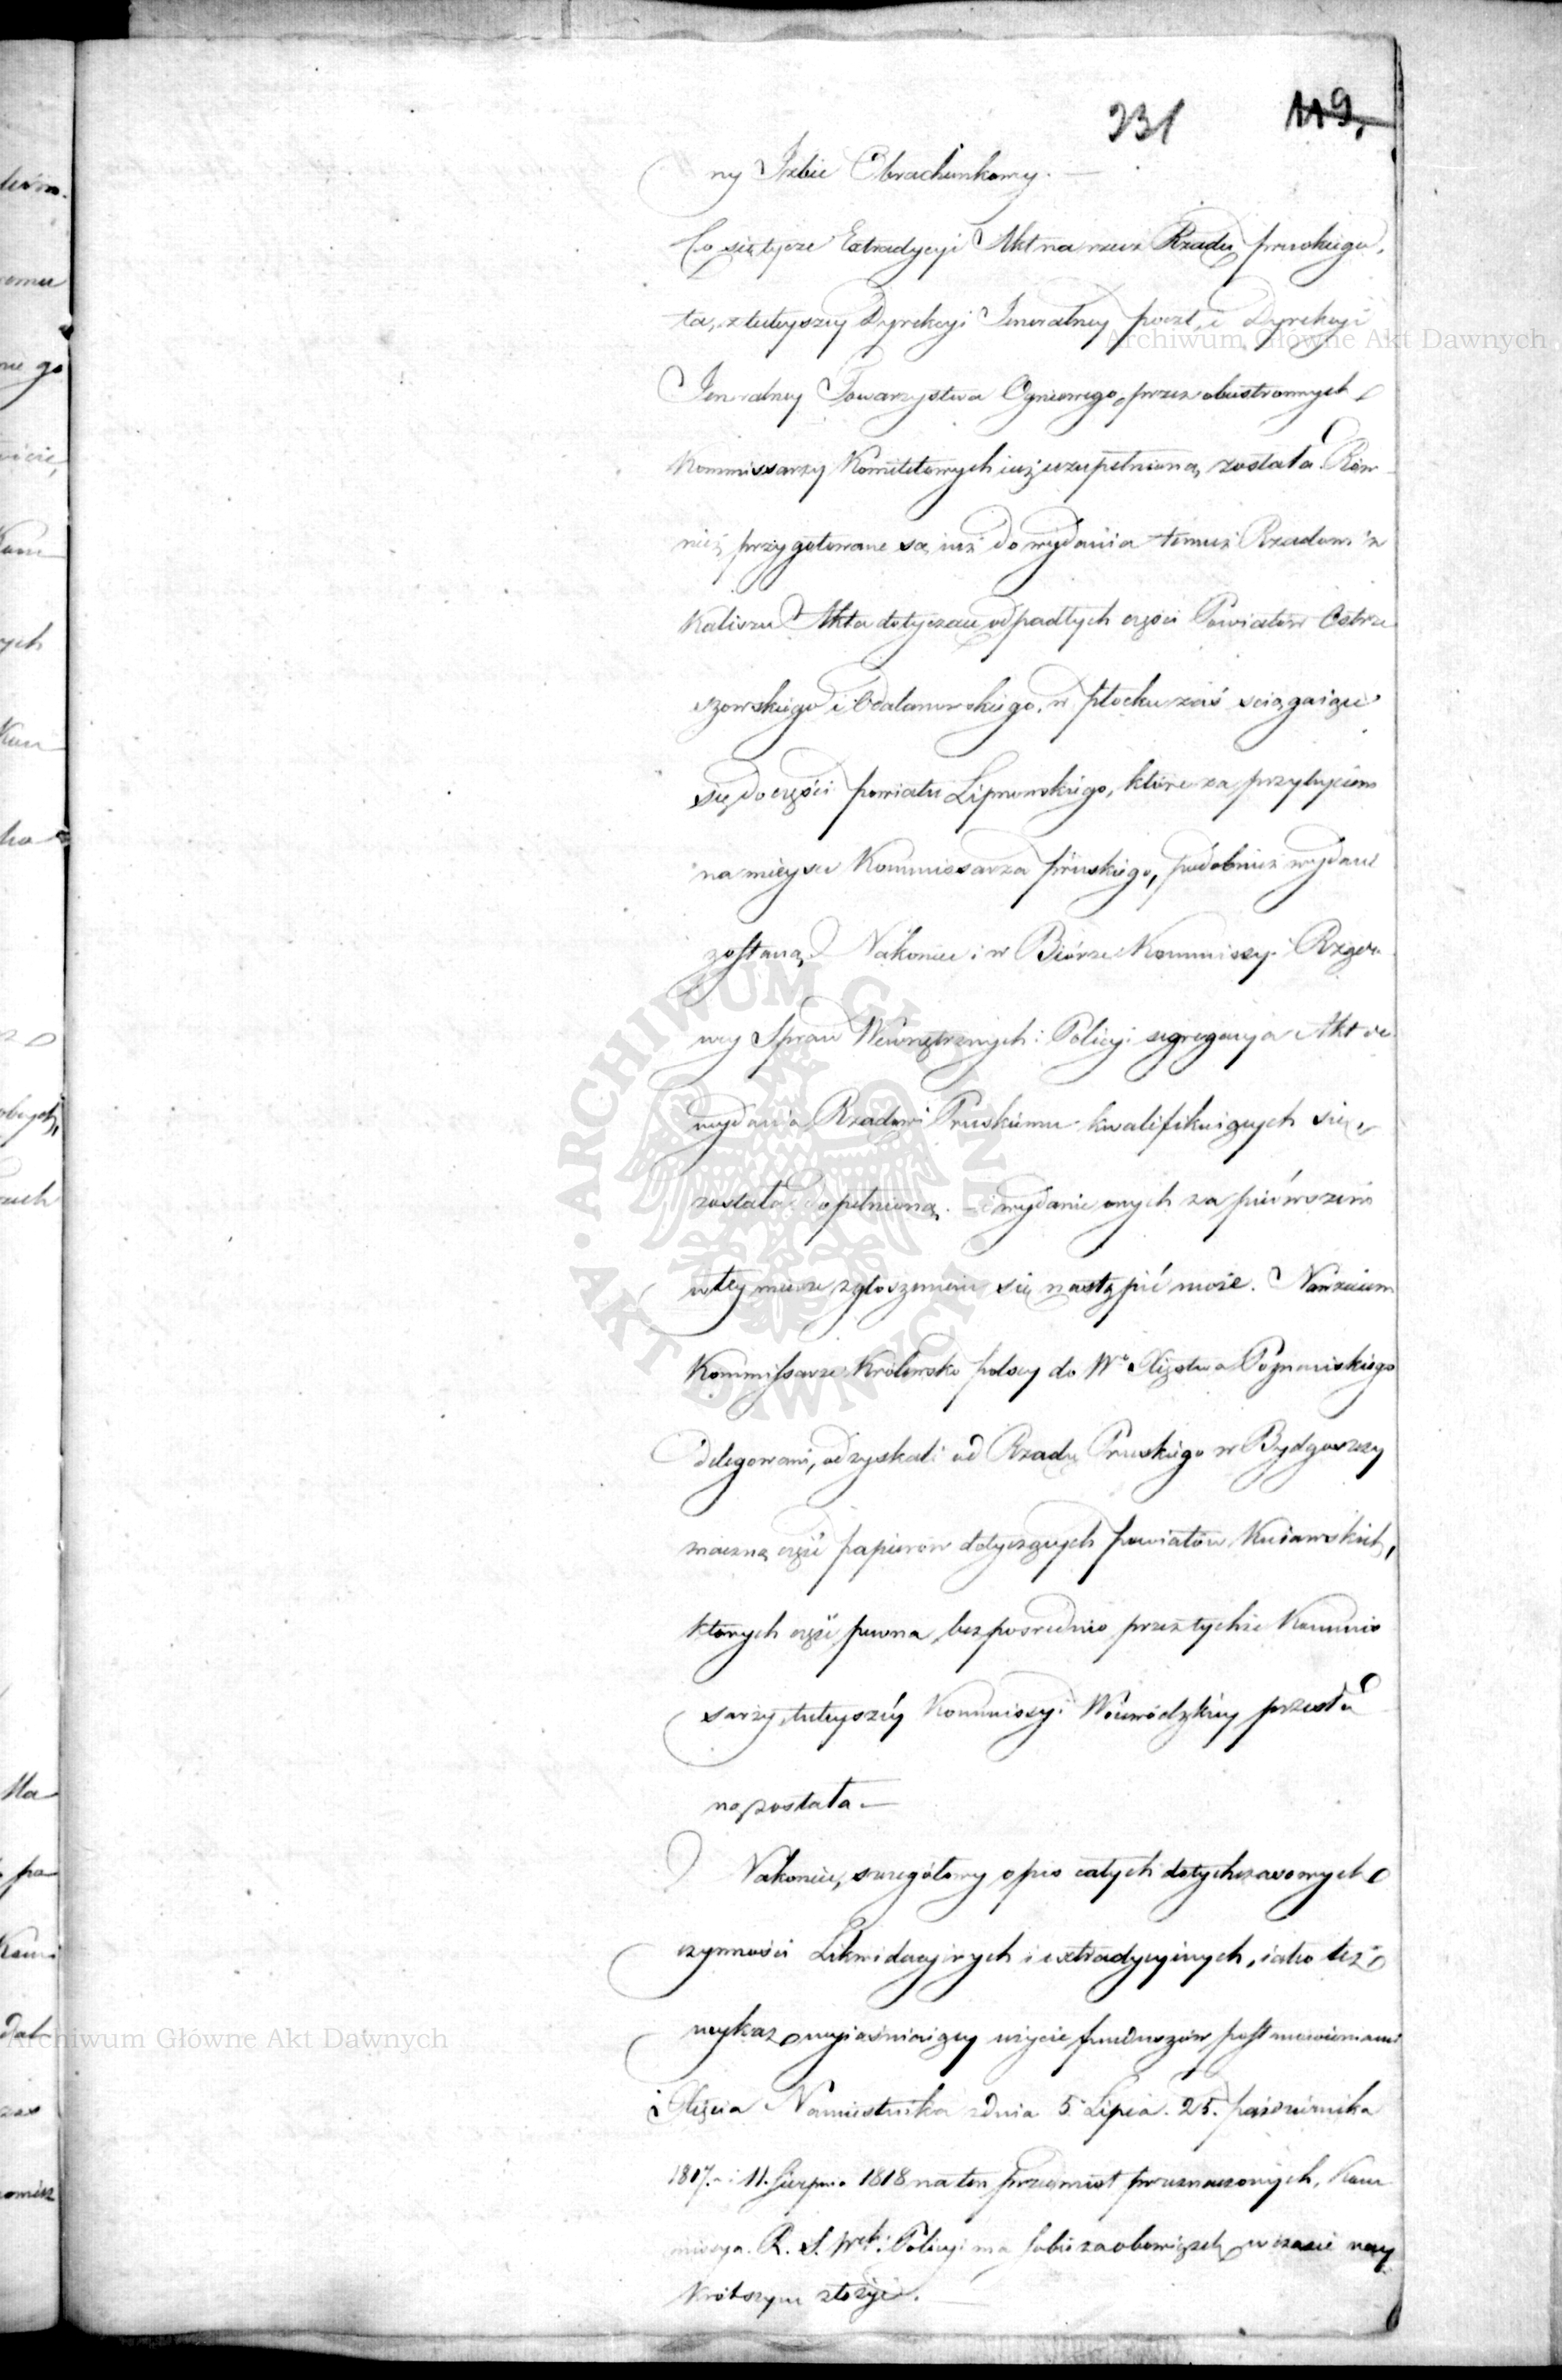 231 119.
ny Izbie Obrachunkowey. —
Co się tycze Extradycyi Akt na rzecz Rządu pruskiego,
ta, z tuteyszey Dyrekcyi Jeneralney poczt, i Dyrekcyi
Jeneralney Towarzystwa Ogniowego, przez obustronnych
Kommissarzy Komitetowych iuż uzupełnioną została. Rów
nież przygotowane są iuż do wydania temuż Rządowi w
Kaliszu Akta dotyczące odpadłych części Powiatów Ostrze
szowskiego i Odalanowskiego, w płocku zaś sciągaiące
się do części powiatu Lipnowskiego, które za przybyciem
na mieysce Kommissarza pruskiego, podobnież wydane
zostaną. Nakoniec i w Biórze Kommissyi Rządo
wey Spraw Wewnętrznych i Policyi segregacya Akt do
wydania Rządowi Pruskiemu kwalifikuiących się,
została dopełnioną. — i wydanie onych za pierwszem
w tey mierze zgłoszeniem się nastąpić może. Nawzaiem
Kommissarze Królewsko polscy do Wo Xięstwa Poznańskiego
Delegowani, odzyskali od Rządu Pruskiego w Bydgoszczy
znaczną część papierów dotyczących powiatów Kuiawskich,
których część pewna, bezpośrednio przez tychże Kommis
sarzy, tuteyszéy Kommissyi Woiewódzkiey przesła
na została —
Nakoniec, szczegółowy opis całych dotychczasowych
czynności Likwidacyinych i extradycyinych, iako też
wykaz wyiaśniaiący użycie funduszów postanowieniami
Xięcia Namiestnika z dnia 5 Lipca. 25. października
1817. i 11. Sierpnia 1818 na ten przedmiot przeznaczonych, Kom
missya R. S. Wch i Policyi ma sobie za obowiązek w czasie nay
krótszym złożyć. —
Archiwum Główne Akt Dawnych
Archiwum Główne Akt Dawnych
ARCHIWUM GŁÓWNE AKT DAWNYCH